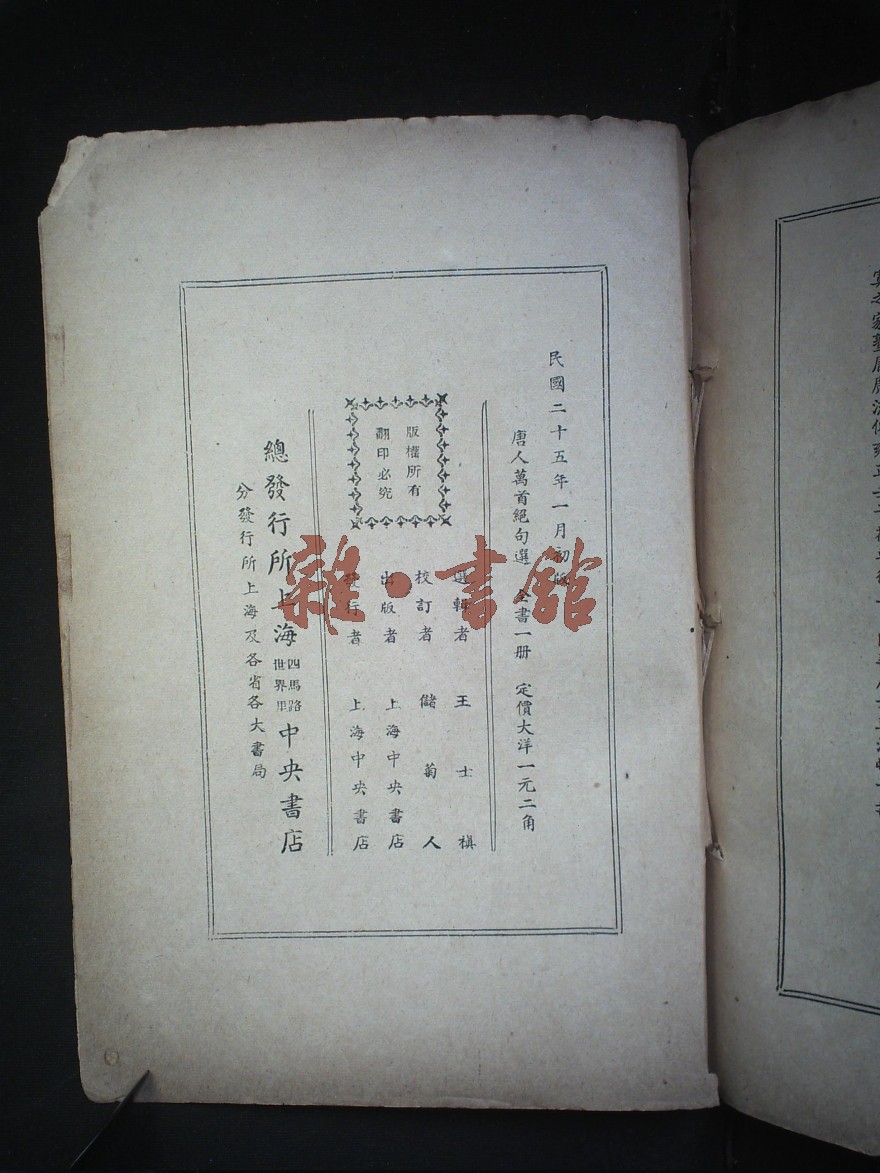 民國二十五年一月初版
唐人萬首絕句選 全書一册 定價大洋一元二角
選輯者 王士禛
校訂者 儲菊人
出版者 上海中央書店
發行者 上海中央書店
版權所有
翻印必究
總發行所上海四馬路世界里中央書店
分發行所上海及各省各大書局
雜·書館